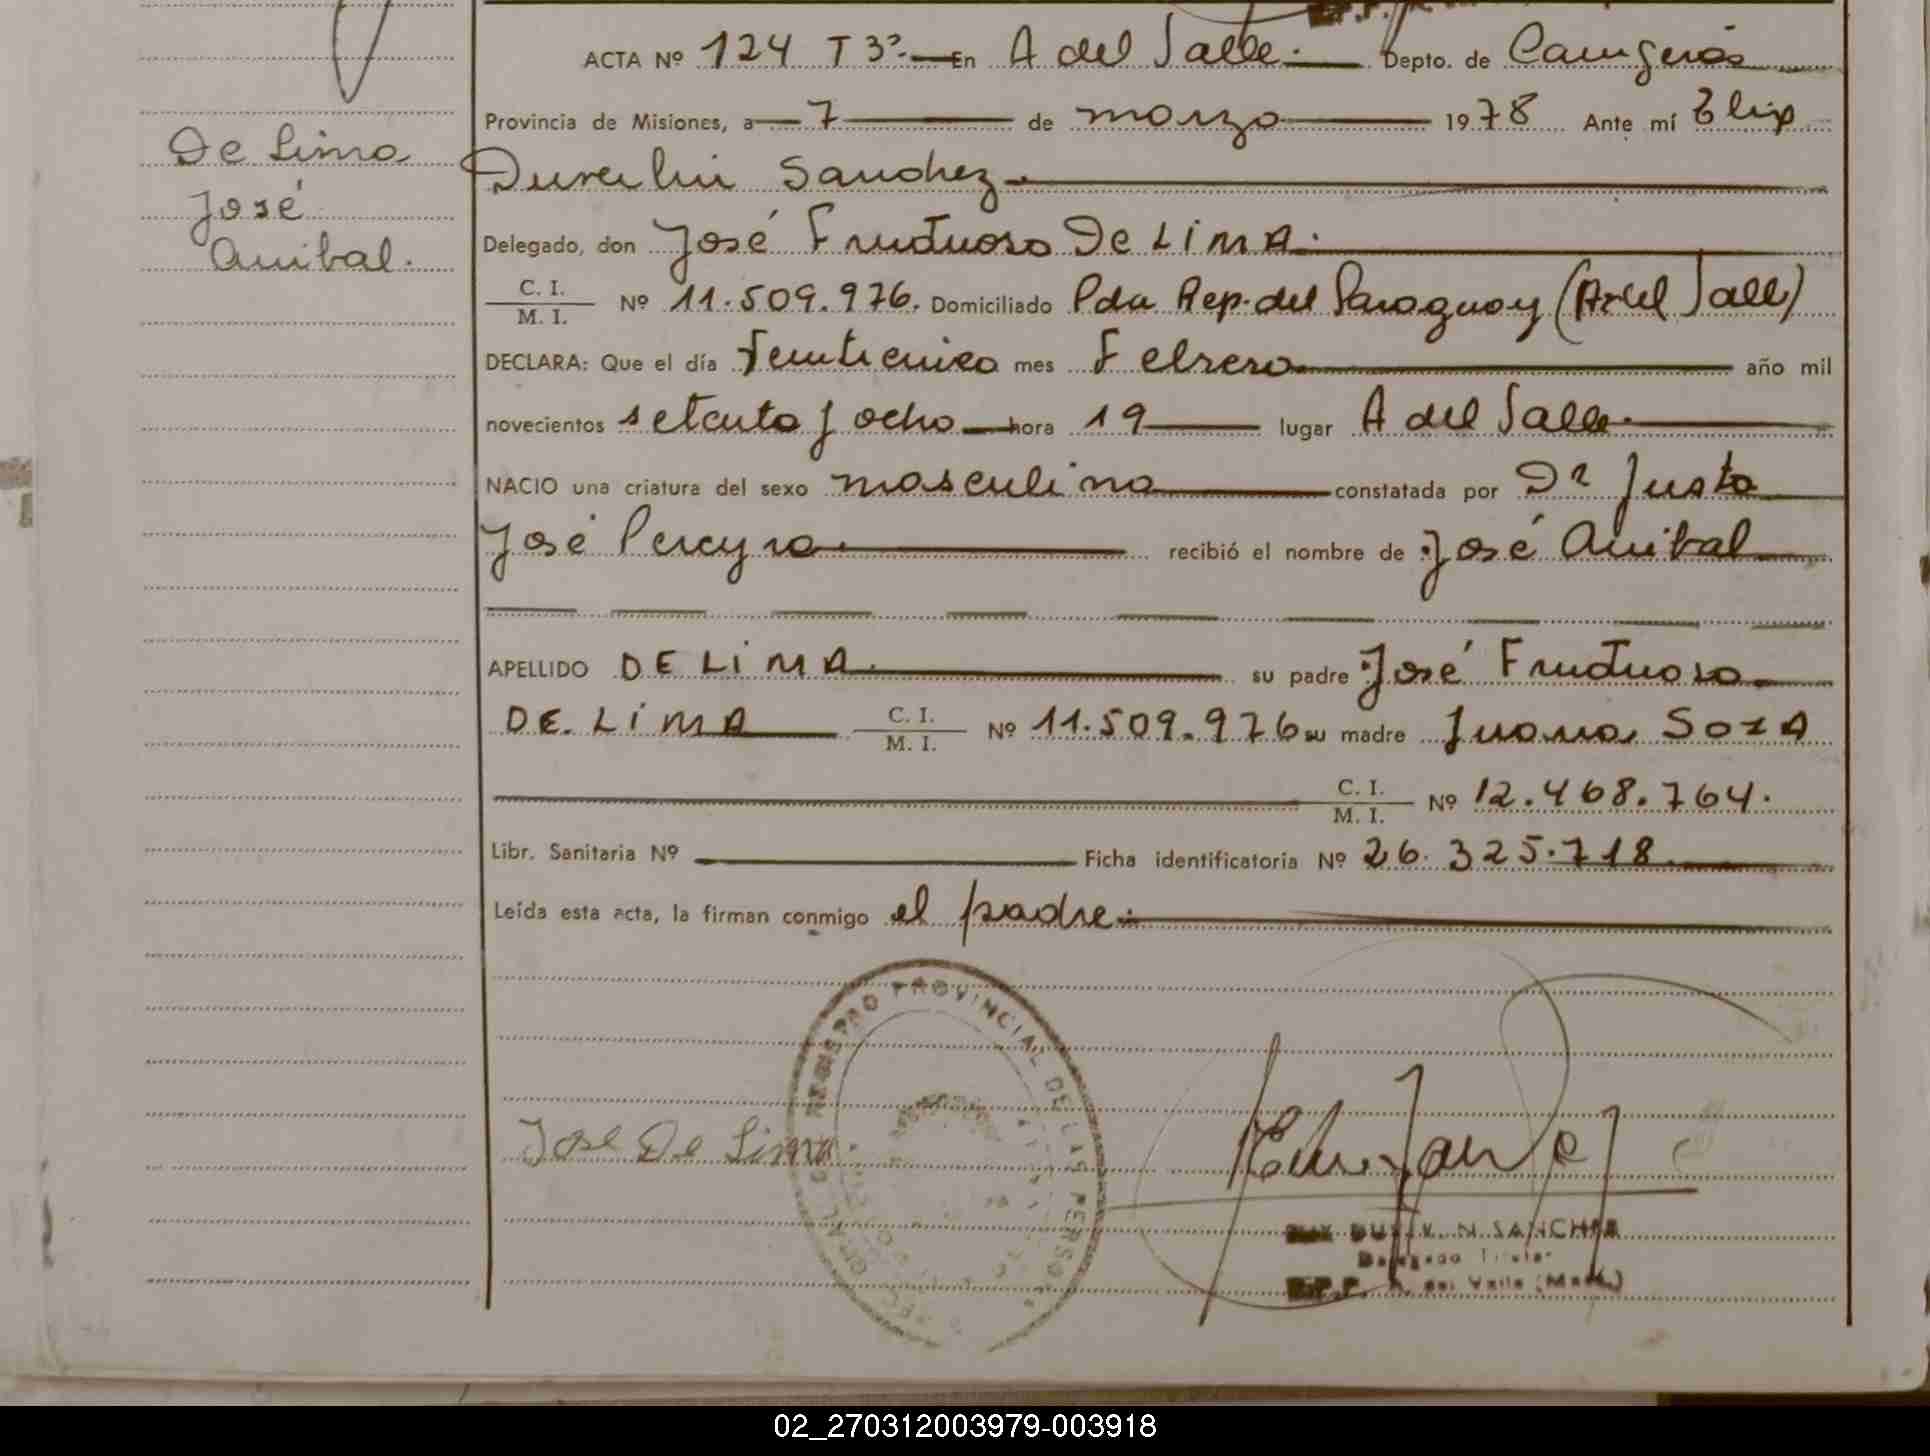 ACTA Nº 124 T 3º En A del Valle. Depto. de Cainguás
Provincia de Misiones, a 7 de marzo 1978 Ante mí
Sanchez
De Lima
José
Anibal.
Delegado, don José Fructuoso De LiMA.
C. I.
M. I. Nº 11.509.976. Domiciliado Pda Rep. del Paraguay (A del Valle)
DECLARA: Que el día veinticinco mes Febrero año mil
novecientos setenta y ocho hora 19 lugar A del Valle
NACIO una criatura del sexo masculino constatada por Justo
José Pereyra recibió el nombre de José Anibal
APELLIDO DE LiMA su padre José Fructuoso
DE LiMA C. I.
M. I. Nº 11.509.976 su madre Juana SosA
C. I.
M. I. Nº 12.468.764.
Libr. Sanitaria Nº Ficha identificatoria Nº 26.325.718
Leída esta acta, la firman conmigo el padre.
REGISTRO PROVINCIAL DE LAS PERSO
Jose De Lima
N. SANCHEZ
Delegado Titular
R.P.P. A. del Valle (Mnes.)
02_270312003979-003918